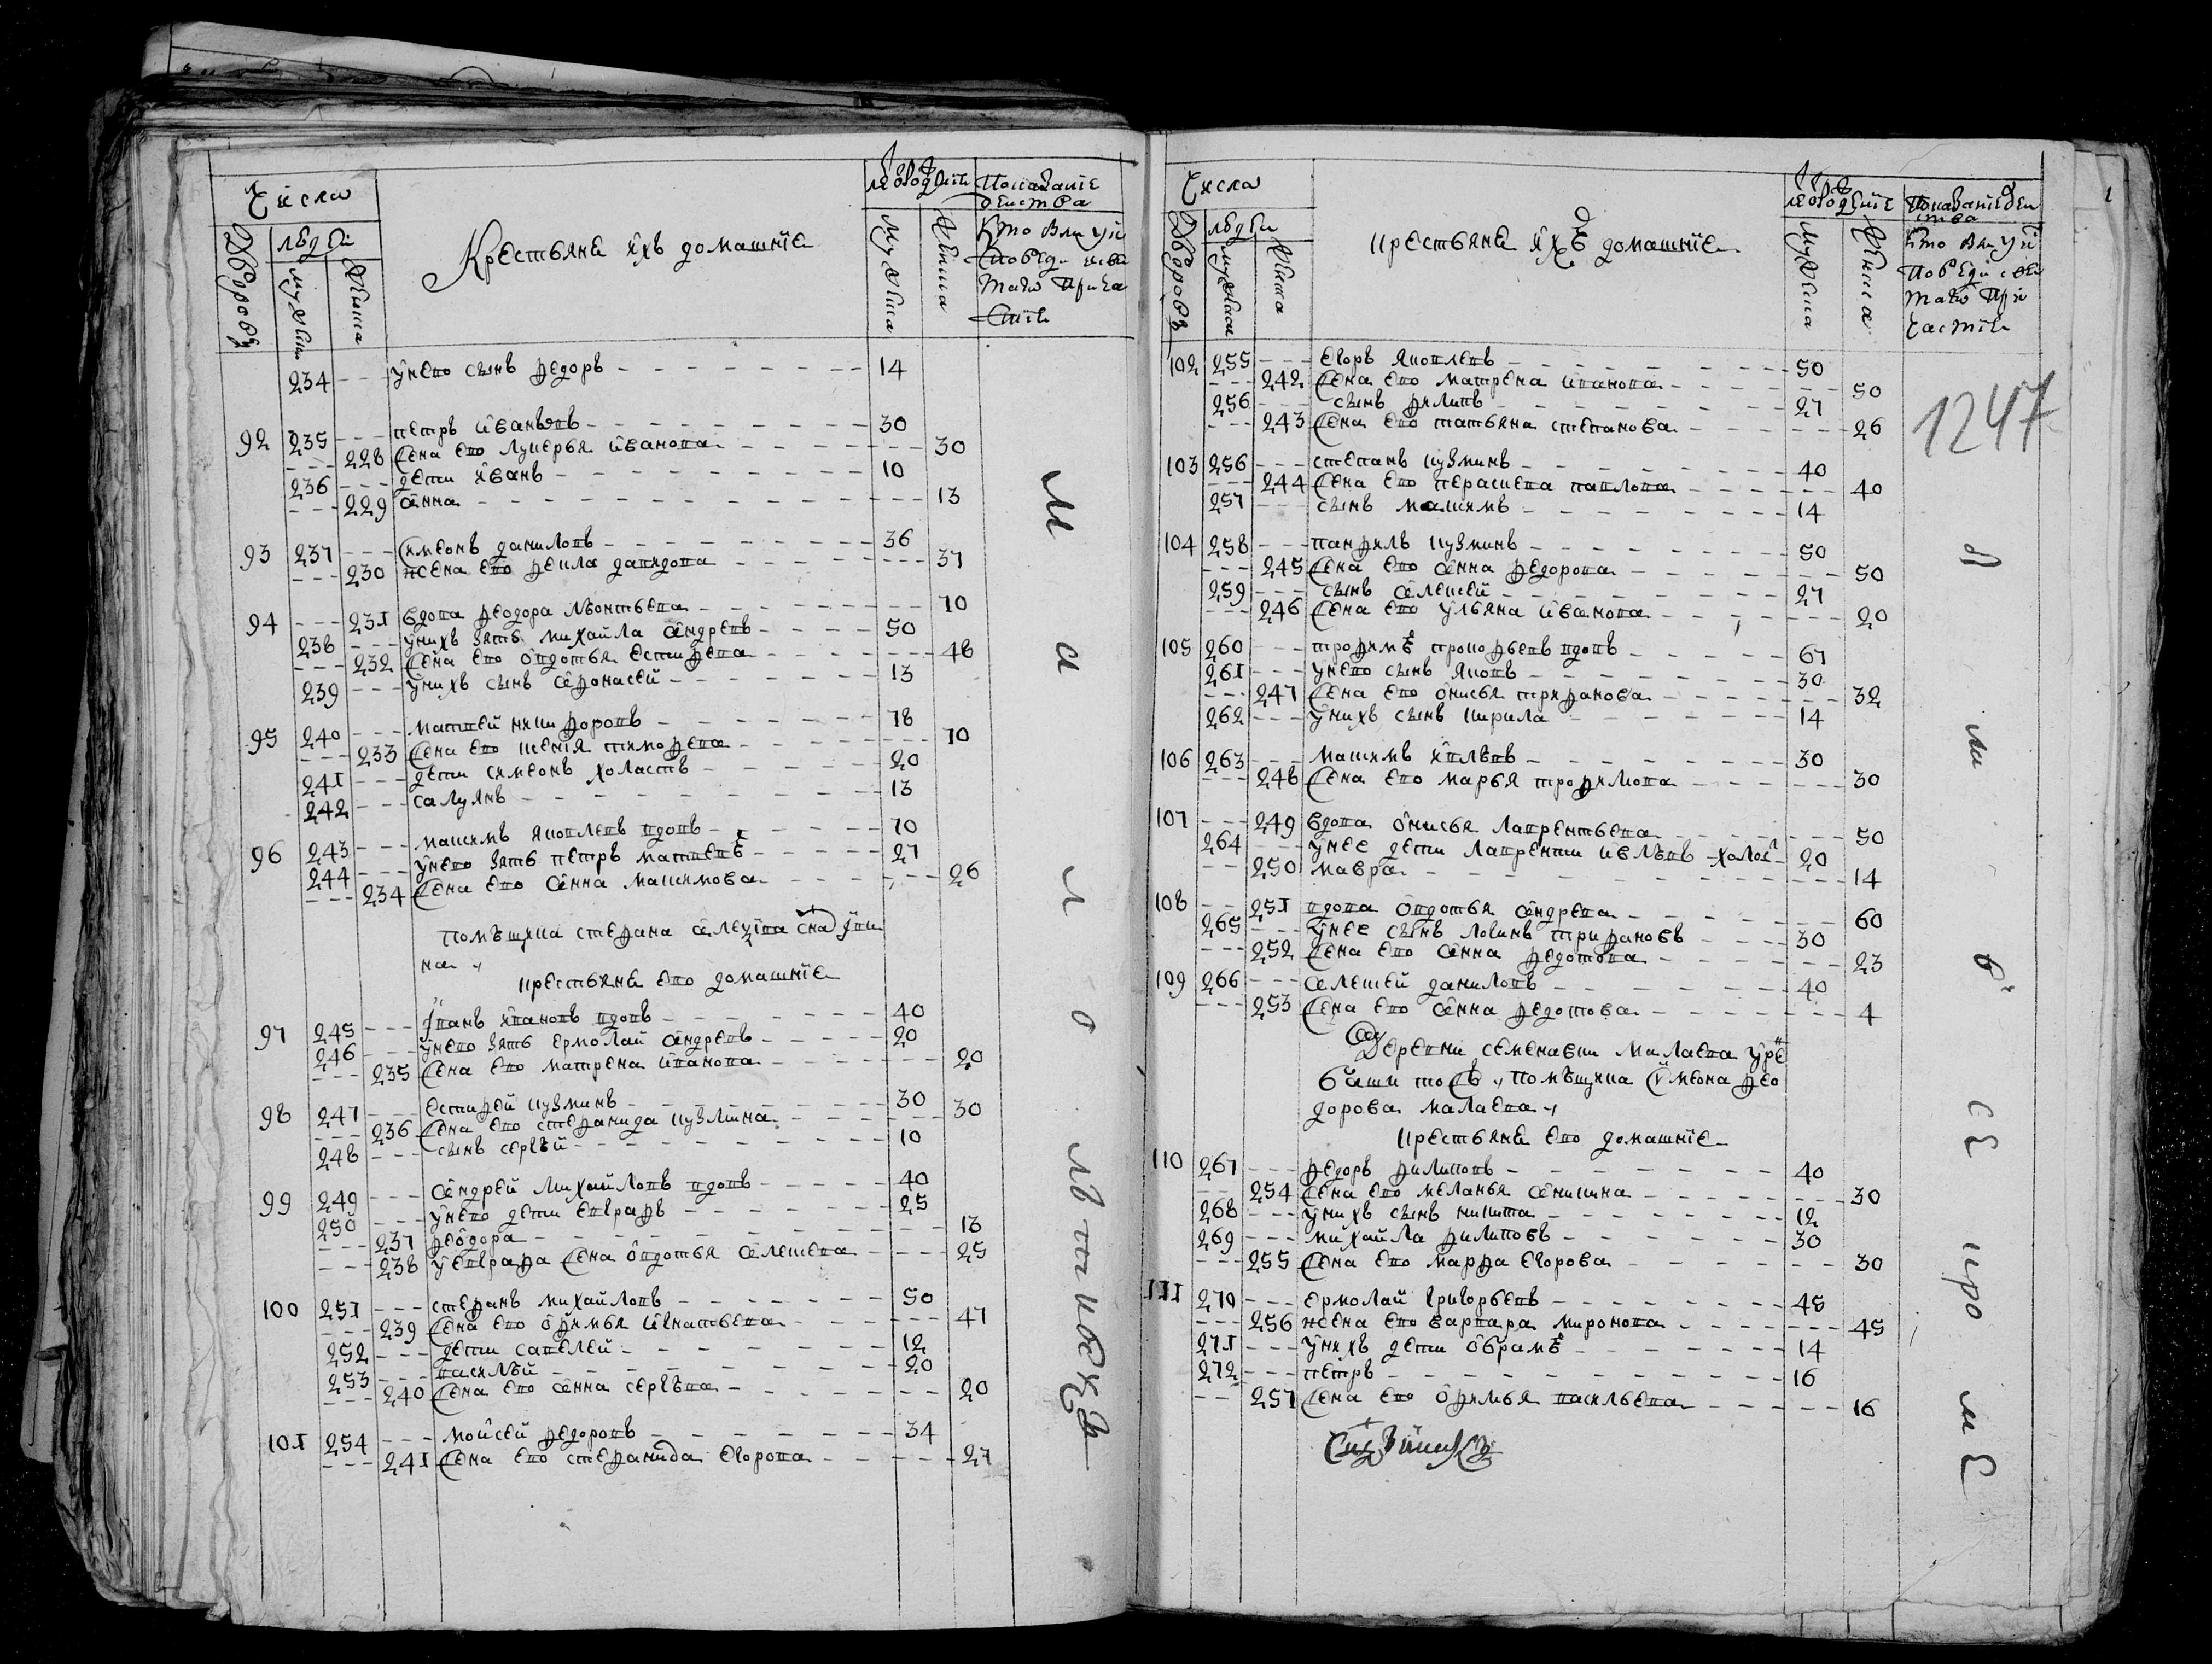 Числа
Дворовъ
людей
мужеска
женска
Крестьяне ихъ домашніе
мужеска
женска
234 --- у него сынъ Ѳедоръ 14
92 235 --- петръ ивановъ 30
--- 228 жена ево лукерья иванова 30
236 --- дети иванъ 10
--- 229 анна 13
93 237 --- симеонъ даниловъ 36
--- 230 жена ево Ѳекла давидова 37
94 --- 231 вдова Ѳеодора лѣонтьева 70
238 --- у нихъ зять михайла андреевъ 50
--- 232 жена ево овдотья естиѲеева 48
239 --- у нихъ сынъ аѲонасей 13
95 240 --- матвей никиѲоровъ 78
--- 233 жена ево ксенія тимоѲеева 70
241 --- дети симеонъ холастъ 20
242 --- 13
96 243 --- максимъ яковлевъ вдовъ 70
244 --- у него зять петръ матвеевъ 27
--- 234 жена ево анна максимова 26
помѣщика стеѲана
на
крестьяне ево домашніе
97 245 --- иванъ ивановъ вдовъ 40
246 --- у него зять ермолай андреевъ 20
--- 235 жена ево матрена иванова 20
98 247 --- естиѲей кузминъ 30
--- 236 жена ево стеѲанида кузмина 30
248 --- сынъ сергѣй 10
99 249 --- андрей михайловъ вдовъ 40
250 --- у него дети евграѲъ 25
--- 237 Ѳеодора 13
--- 238 у евграѲа жена овдотья алексеева 25
100 251 --- стеѲанъ михайловъ 50
--- 239 жена ево оѲимья игнатьева 47
252 --- дети савелей 12
253 --- василѣй 20
--- 240 жена ево анна сергѣева 20
101 254 --- моисей Ѳедоровъ 34
--- 241 жена ево стеѲанида егорова 27
Числа
Дворовъ
людей
мужеска
женска
крестьяне ихъ домашніе
мужеска
женска
1247
102 255 --- егоръ яковлевъ 50
--- 242 жена ево матрена иванова 50
256 --- сынъ Ѳилипъ 27
--- 243 жена ево татьяна степанова 26
103 256 --- степанъ кузминъ 40
--- 244 жена ево пераскева павлова 40
257 --- сынъ максимъ 14
104 258 --- панѲилъ кузминъ 50
--- 245 жена ево анна Ѳедорова 50
259 --- сынъ алексей 27
--- 246 жена ево ульяна иванова 20
105 260 --- троѲимъ прокоѲьевъ вдовъ 67
261 --- у него сынъ яковъ 30
--- 247 жена ево онисья триѲанова 32
262 --- у нихъ сынъ кирила 14
106 263 --- максимъ ивлѣвъ 30
--- 248 жена ево марья троѲимова 30
107 --- 249 вдова онисья лаврентьева 50
264 --- у нее дети лаврентии ивлѣвъ холос 20
--- 250 мавра 14
108 --- 251 вдова овдотья андреева 60
265 --- у нее сынъ логинъ триѲановъ 30
--- 252 жена ево анна Ѳедотова 23
109 266 --- алексей даниловъ 40
--- 253 жена ево анна Ѳедотова 4
Деревни семенавки малаева
помѣщика симеона Ѳео
дорова малаева
крестьяне ево домашніе
110 267 --- Ѳедоръ Ѳилиповъ 40
--- 254 жена ево меланья аникина 30
268 --- у нихъ сынъ никита 12
269 --- михайла Ѳилиповъ 30
--- 255 жена ево марѲа егорова 30
111 270 --- ермолай григорьевъ 45
--- 256 жена ево варвара миронова 45
271 --- у нихъ дети обрамъ 14
272 --- петръ 16
--- 257 жена ево оѲимья васильева 16